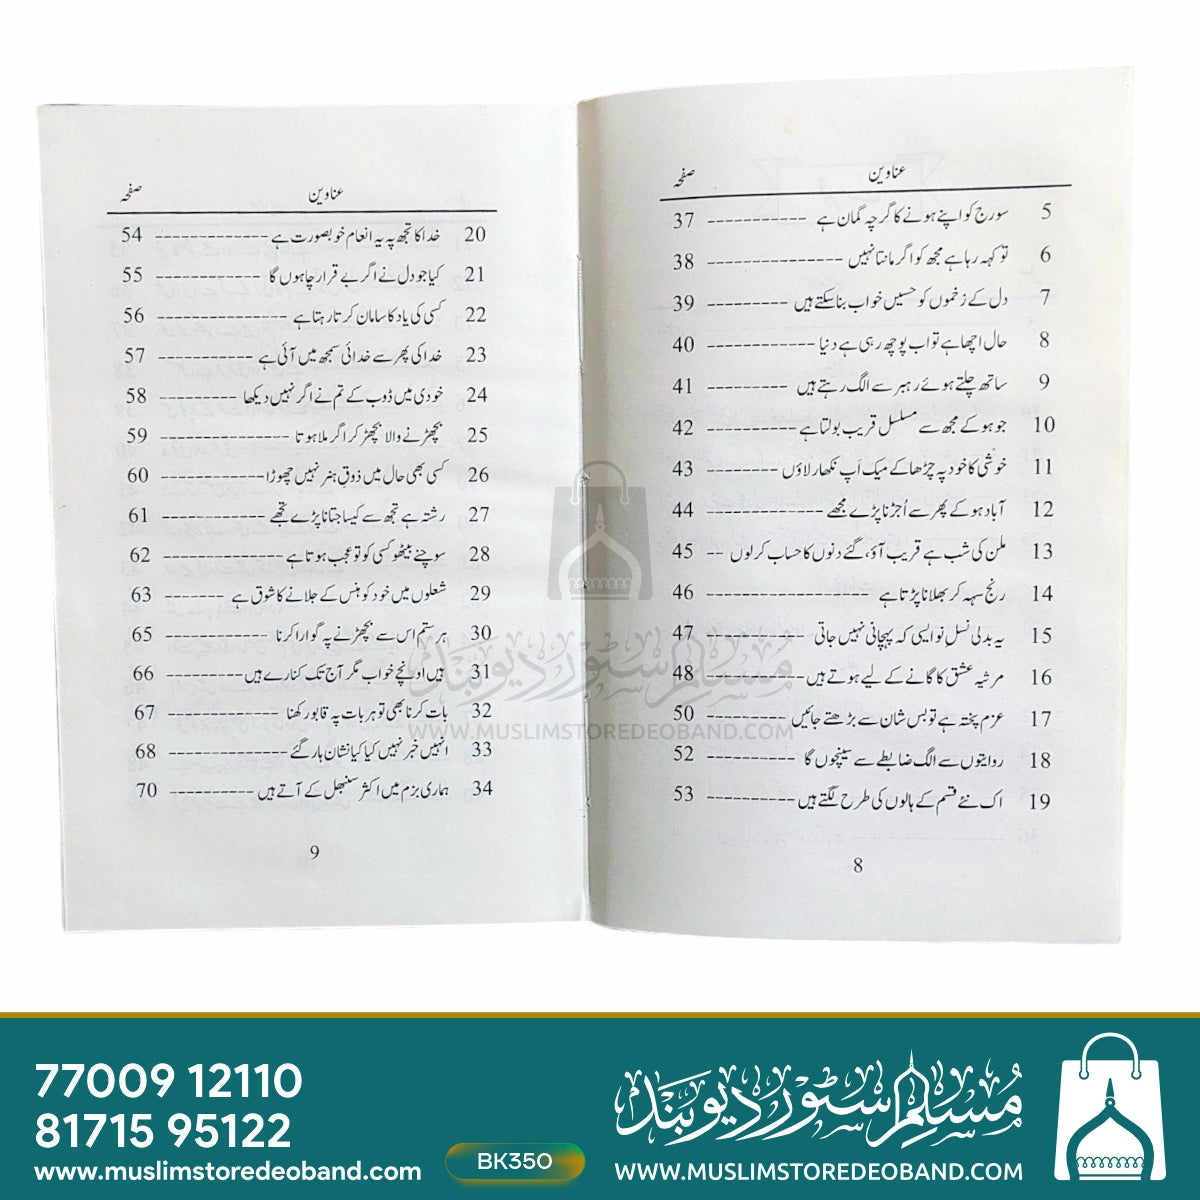 عناوین صفحہ
5 سورج کو اپنے ہونے کا گرچہ گمان ہے ----------- 37
6 تو کہہ رہا ہے مجھ کو اگر مانتا نہیں --------------- 38
7 دل کے زخموں کو حسیں خواب بنا سکتے ہیں --------- 39
8 حال اچھا ہے تو اب پوچھ رہی ہے دنیا ------------ 40
9 ساتھ چلتے ہوئے رہبر سے الگ رہتے ہیں --------- 41
10 جو ہو کے مجھ سے مسلسل قریب بولتا ہے ---------- 42
11 خوشی کا خود پہ چڑھا کے میک اَپ نکھار لاؤں -------- 43
12 آباد ہو کے پھر سے اُجڑنا پڑے مجھے ------------- 44
13 ملن کی شب ہے قریب آؤ، گئے دنوں کا حساب کرلوں -- 45
14 رنج سہہ کر بھلانا پڑتا ہے ------------------ 46
15 یہ بدلی نسلِ نو ایسی کہ پہچانی نہیں جاتی ----------- 47
16 مرثیہ عشق کا گانے کے لیے ہوتے ہیں ----------- 48
17 عزم پختہ ہے تو بس شان سے بڑھتے جائیں --------- 50
18 روایتوں سے الگ ضابطے سے سینچوں گا ---------- 52
19 اک نئے قسم کے ہالوں کی طرح لگتے ہیں ---------- 53
8
عناوین صفحہ
20 خدا کا تجھ پہ یہ انعام خوبصورت ہے ------------- 54
21 کیا جو دل نے اگر بے قرار چاہوں گا ------------ 55
22 کسی کی یاد کا سامان کرتا رہتا ہے --------------- 56
23 خدا کی پھر سے خدائی سمجھ میں آئی ہے ----------- 57
24 خودی میں ڈوب کے تم نے اگر نہیں دیکھا --------- 58
25 بچھڑنے والا بچھڑ کر اگر ملا ہوتا --------------- 59
26 کسی بھی حال میں ذوقِ ہنر نہیں چھوڑا ------------ 60
27 رشتہ ہے تجھ سے کیسا جتانا پڑے تجھے ------------ 61
28 سوچنے بیٹھو کسی کو تو عجب ہوتا ہے -------------- 62
29 شعلوں میں خود کو ہنس کے جلانے کا شوق ہے -------- 63
30 ہر ستم اس سے بچھڑنے پہ گوارا کرنا ------------- 65
31 ہیں اونچے خواب مگر آج تک کنارے ہیں --------- 66
32 بات کرنا بھی تو ہر بات پہ قابو رکھنا ------------ 67
33 انہیں خبر نہیں کیا کیا نشان ہار گئے ------------- 68
34 ہماری بزم میں اکثر سنبھل کے آتے ہیں ---------- 70
9
مسلم سٹور دیوبند
WWW.MUSLIMSTOREDEOBAND.COM
77009 12110
81715 95122
www.muslimstoredeoband.com
BK350
مسلم سٹور دیوبند
WWW.MUSLIMSTOREDEOBAND.COM